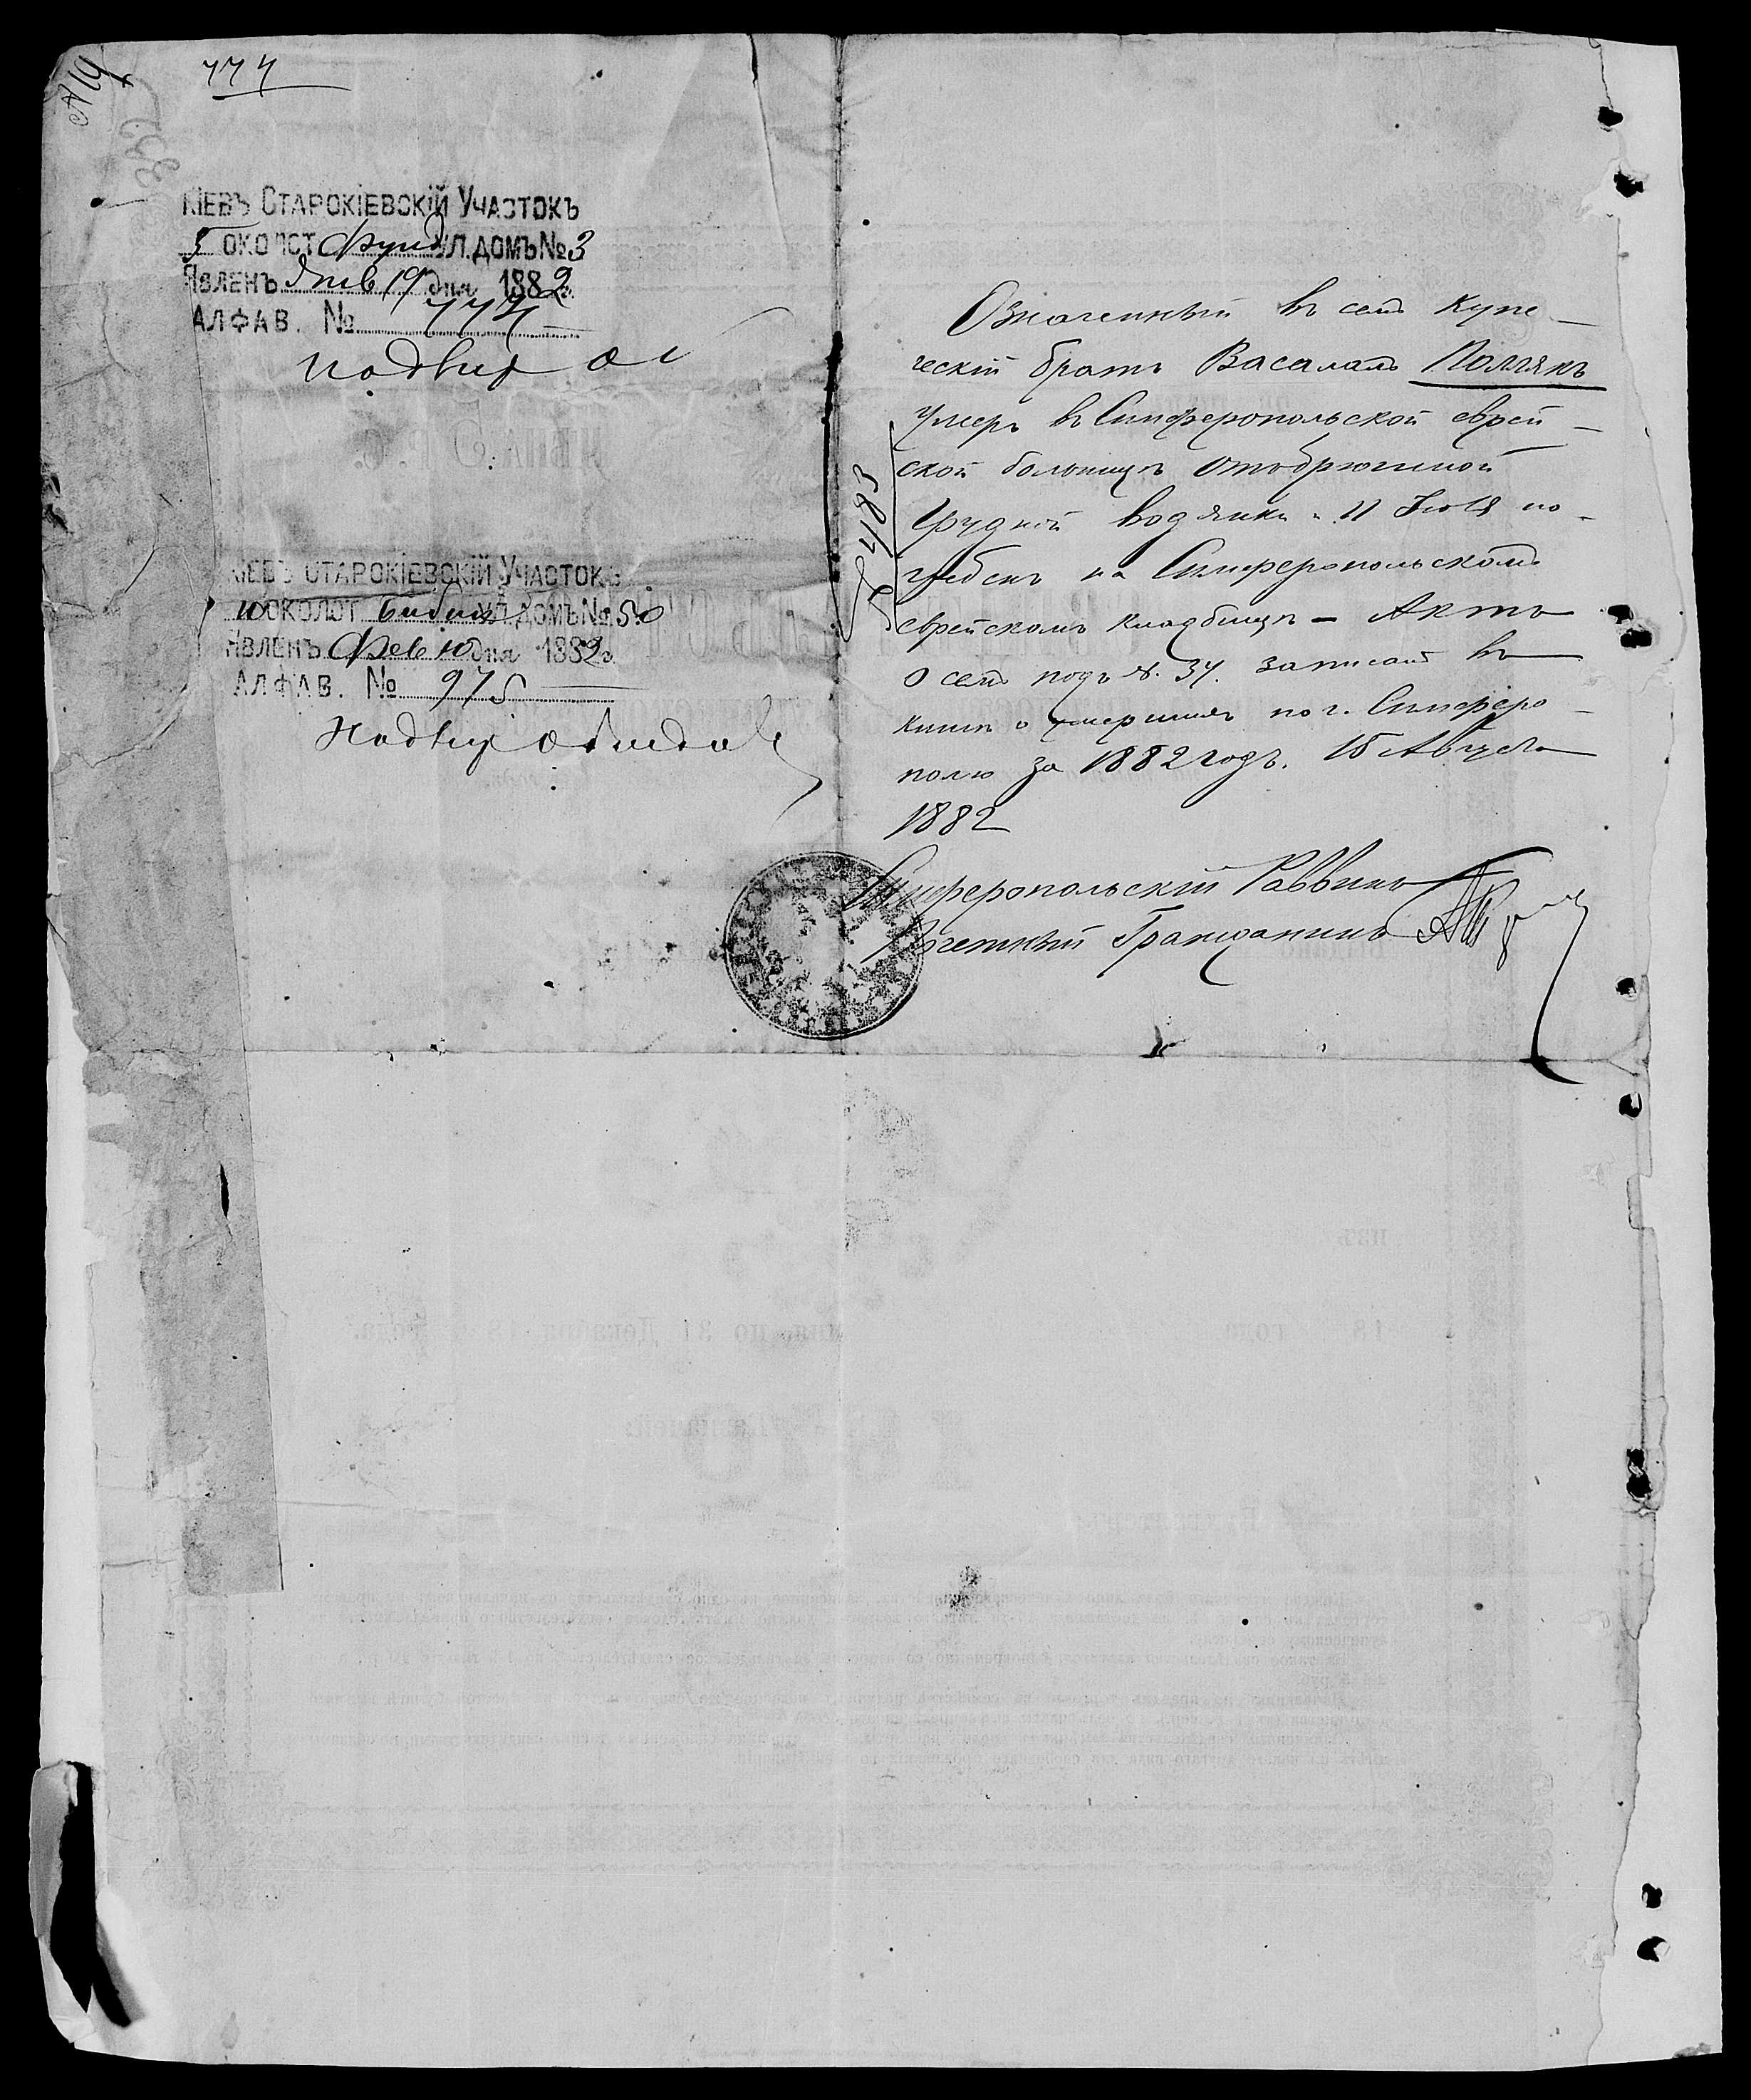 774
КІЕВЪ СТАРОКІЕВСКІЙ УЧАСТОКЪ
5 ОКОЛОТ. Фунд УЛ. ДОМЪ № 3
ЯВЛЕНЪ Янв 19 дня 1882 г.
АЛФАВ. № 774
КІЕВЪ СТАРОКІЕВСКІЙ УЧАСТОКЪ
ОКОЛОТ. Бибик УЛ. ДОМЪ № 50
ЯВЛЕНЪ Фев 10 дня 1882 г.
АЛФАВ. № 975
Означенный въ семъ купе-
ческій братъ Васаламъ Полякъ
умеръ въ Симферопольской еврей-
ской больницѣ отъ брюшной
грудной водянки и 11 Іюля по-
гребенъ на Симферопольскомъ
еврейскомъ кладбищѣ – Актъ
о семъ подъ №. 34. записанъ въ
книгѣ о умершихъ по г. Симферо-
полю за 1882 годъ. 15 Августа
1882
Симферопольскій Раввинъ
Почетный Гражданинъ